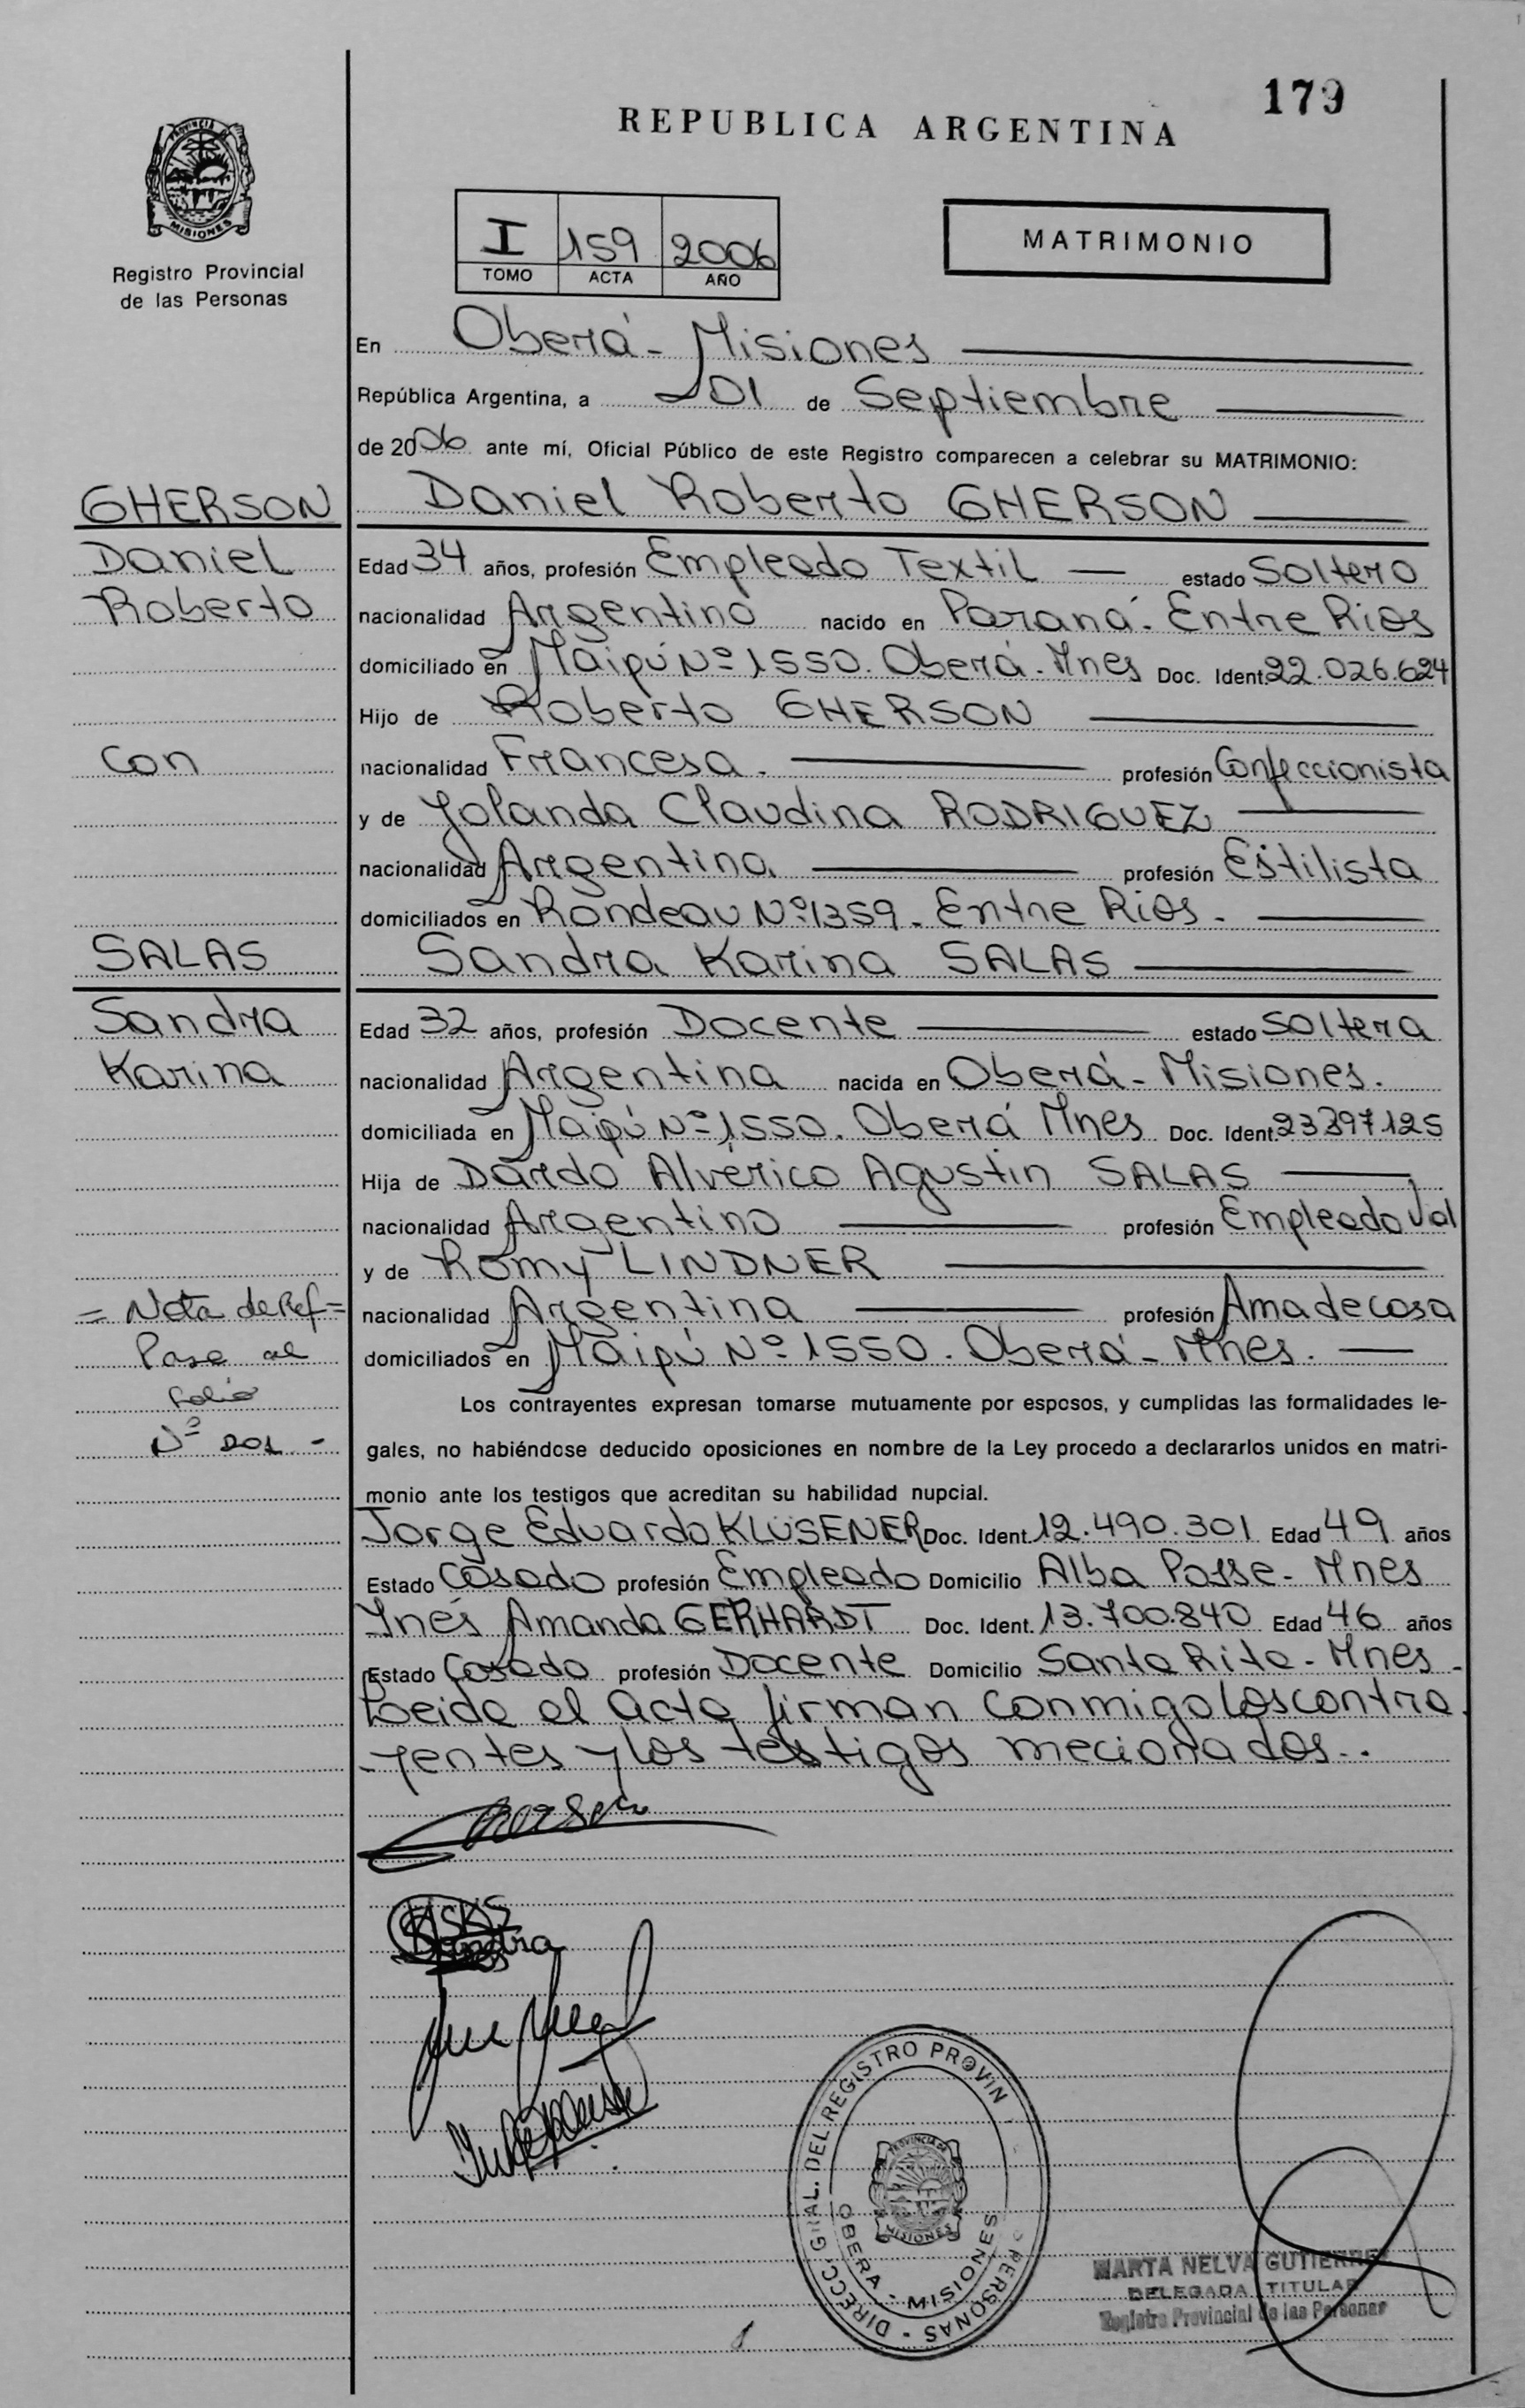 179
REPUBLICA ARGENTINA
PROVINCIA DE
MISIONES
Registro Provincial
de las Personas
I 159 2006
TOMO ACTA AÑO
MATRIMONIO
En Oberá - Misiones
República Argentina, a 01 de Septiembre
de 2006 ante mí, Oficial Público de este Registro comparecen a celebrar su MATRIMONIO:
GHERSON Daniel Roberto GHERSON
Daniel Edad 34 años, profesión Empleado Textil estado Soltero
Roberto nacionalidad Argentino nacido en Paraná - Entre Rios
domiciliado en Maipú Nº 1550. Oberá - Mnes Doc. Ident. 22.026.624
Hijo de Roberto GHERSON
Con nacionalidad Francesa. profesión Confeccionista
y de Yolanda Claudina RODRIGUEZ
nacionalidad Argentina profesión Estilista
domiciliados en Rondeau Nº 1359 - Entre Rios -
SALAS Sandra Karina SALAS
Sandra Edad 32 años, profesión Docente estado Soltera
Karina nacionalidad Argentina nacida en Oberá - Misiones.
domiciliada en Maipú Nº 1550. Oberá Mnes Doc. Ident.
Hija de Dardo Alvérico Agustin SALAS
nacionalidad Argentino profesión Empleado Vial
y de Romy LINDNER
= Nota de Ref = nacionalidad Argentina profesión Ama de casa
Pase al domiciliados en Maipú Nº 1550. Oberá - Mnes.
folio Los contrayentes expresan tomarse mutuamente por esposos, y cumplidas las formalidades le-
Nº 201 - gales, no habiéndose deducido oposiciones en nombre de la Ley procedo a declararlos unidos en matri-
monio ante los testigos que acreditan su habilidad nupcial.
Jorge Eduardo KLÜSENER Doc. Ident. 12.490.301 Edad 49 años
Estado Casado profesión Empleado Domicilio Alba Posse - Mnes
Inés Amanda GERHARDT Doc. Ident. 13.700.840 Edad 46 años
Estado Casada profesión Docente Domicilio Santa Rita - Mnes -
Leida el acta firman conmigo los contra
yentes y los testigos mecionados..
Sandra
DIRECC. GRAL. DEL REGISTRO PROVIN PERSONAS -
OBERA - MISIONES
PROVINCIA DE
MISIONES
MARTA NELVA GUTIERREZ
DELEGADA TITULAR
Registro Provincial de las Personas